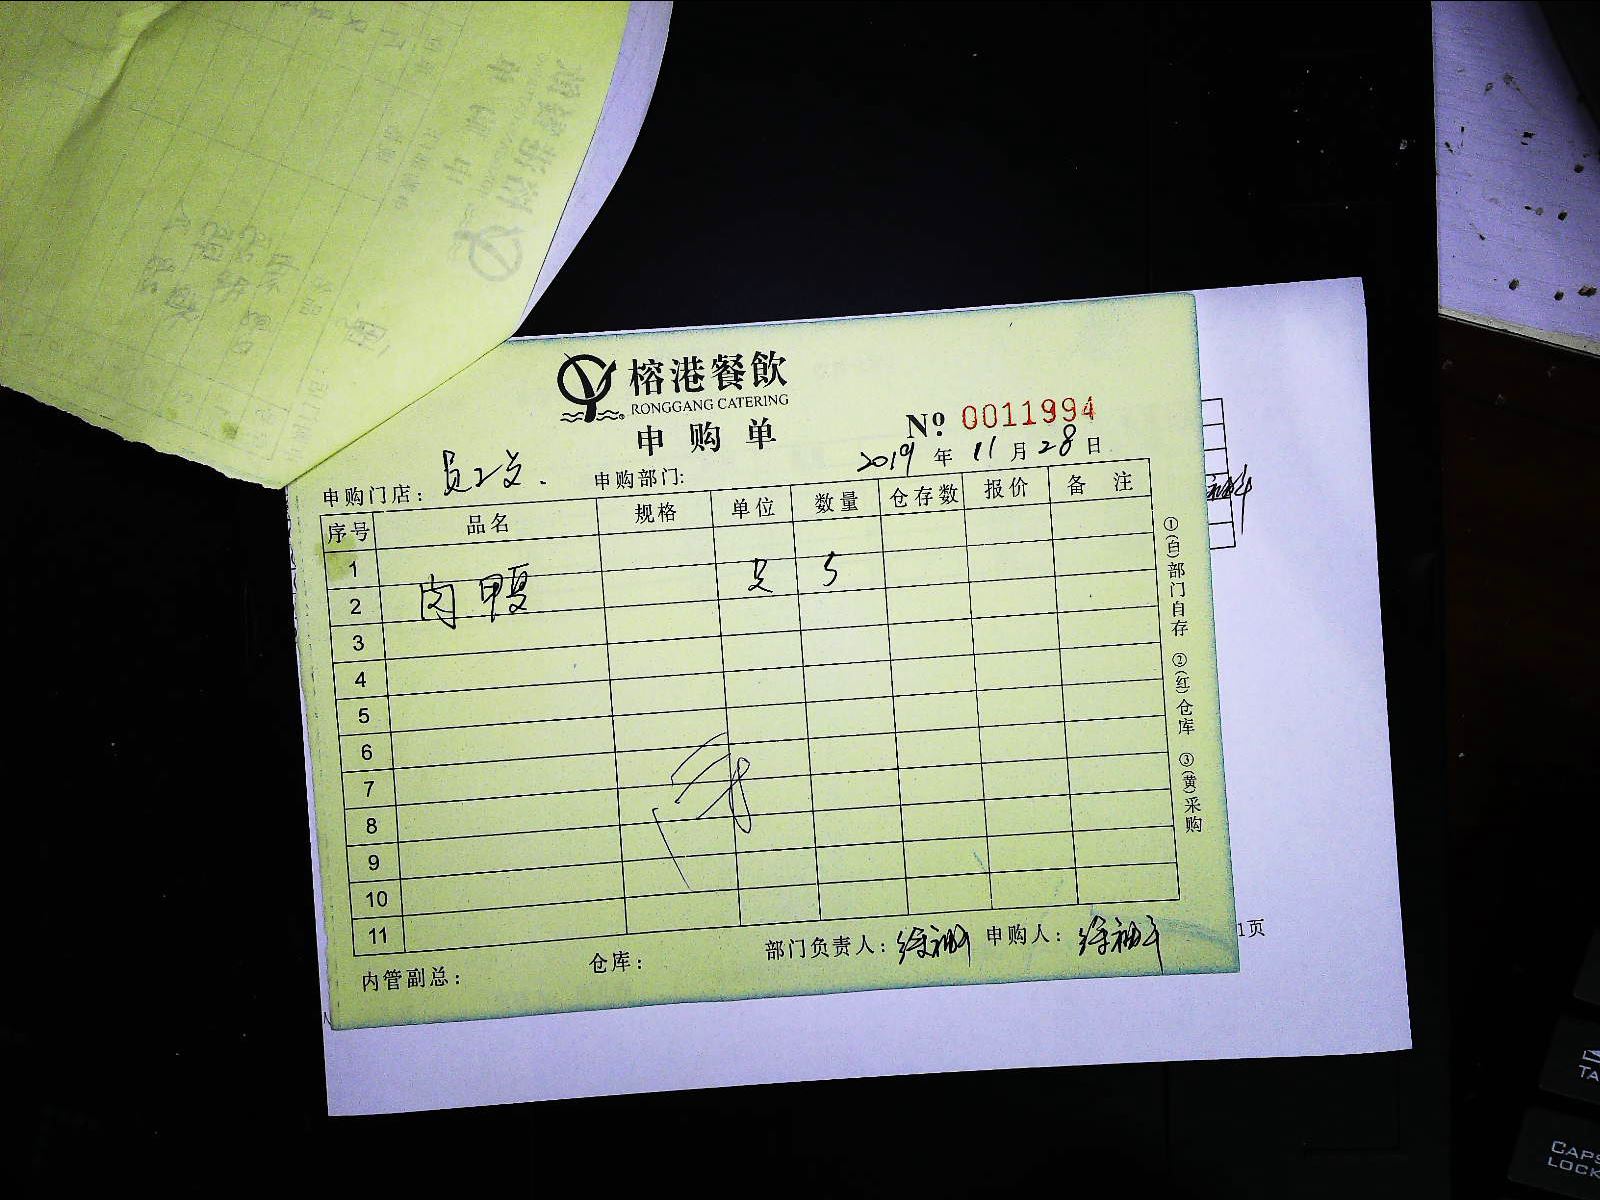 榕港餐飲
RONGGANG CATERING
申购单
No. 0011994
2019年11月28日
申购门店: 员工 申购部门:
序号 品名 规格 单位 数量 仓存数 报价 备注
1
2 肉鸭 支 5
3
4
5
6
7
8
9
10
11
内管副总: 仓库: 部门负责人: 申购人:
①(自)部门自存 ②(红)仓库 ③(黄)采购
1页
CAPS
LOCK